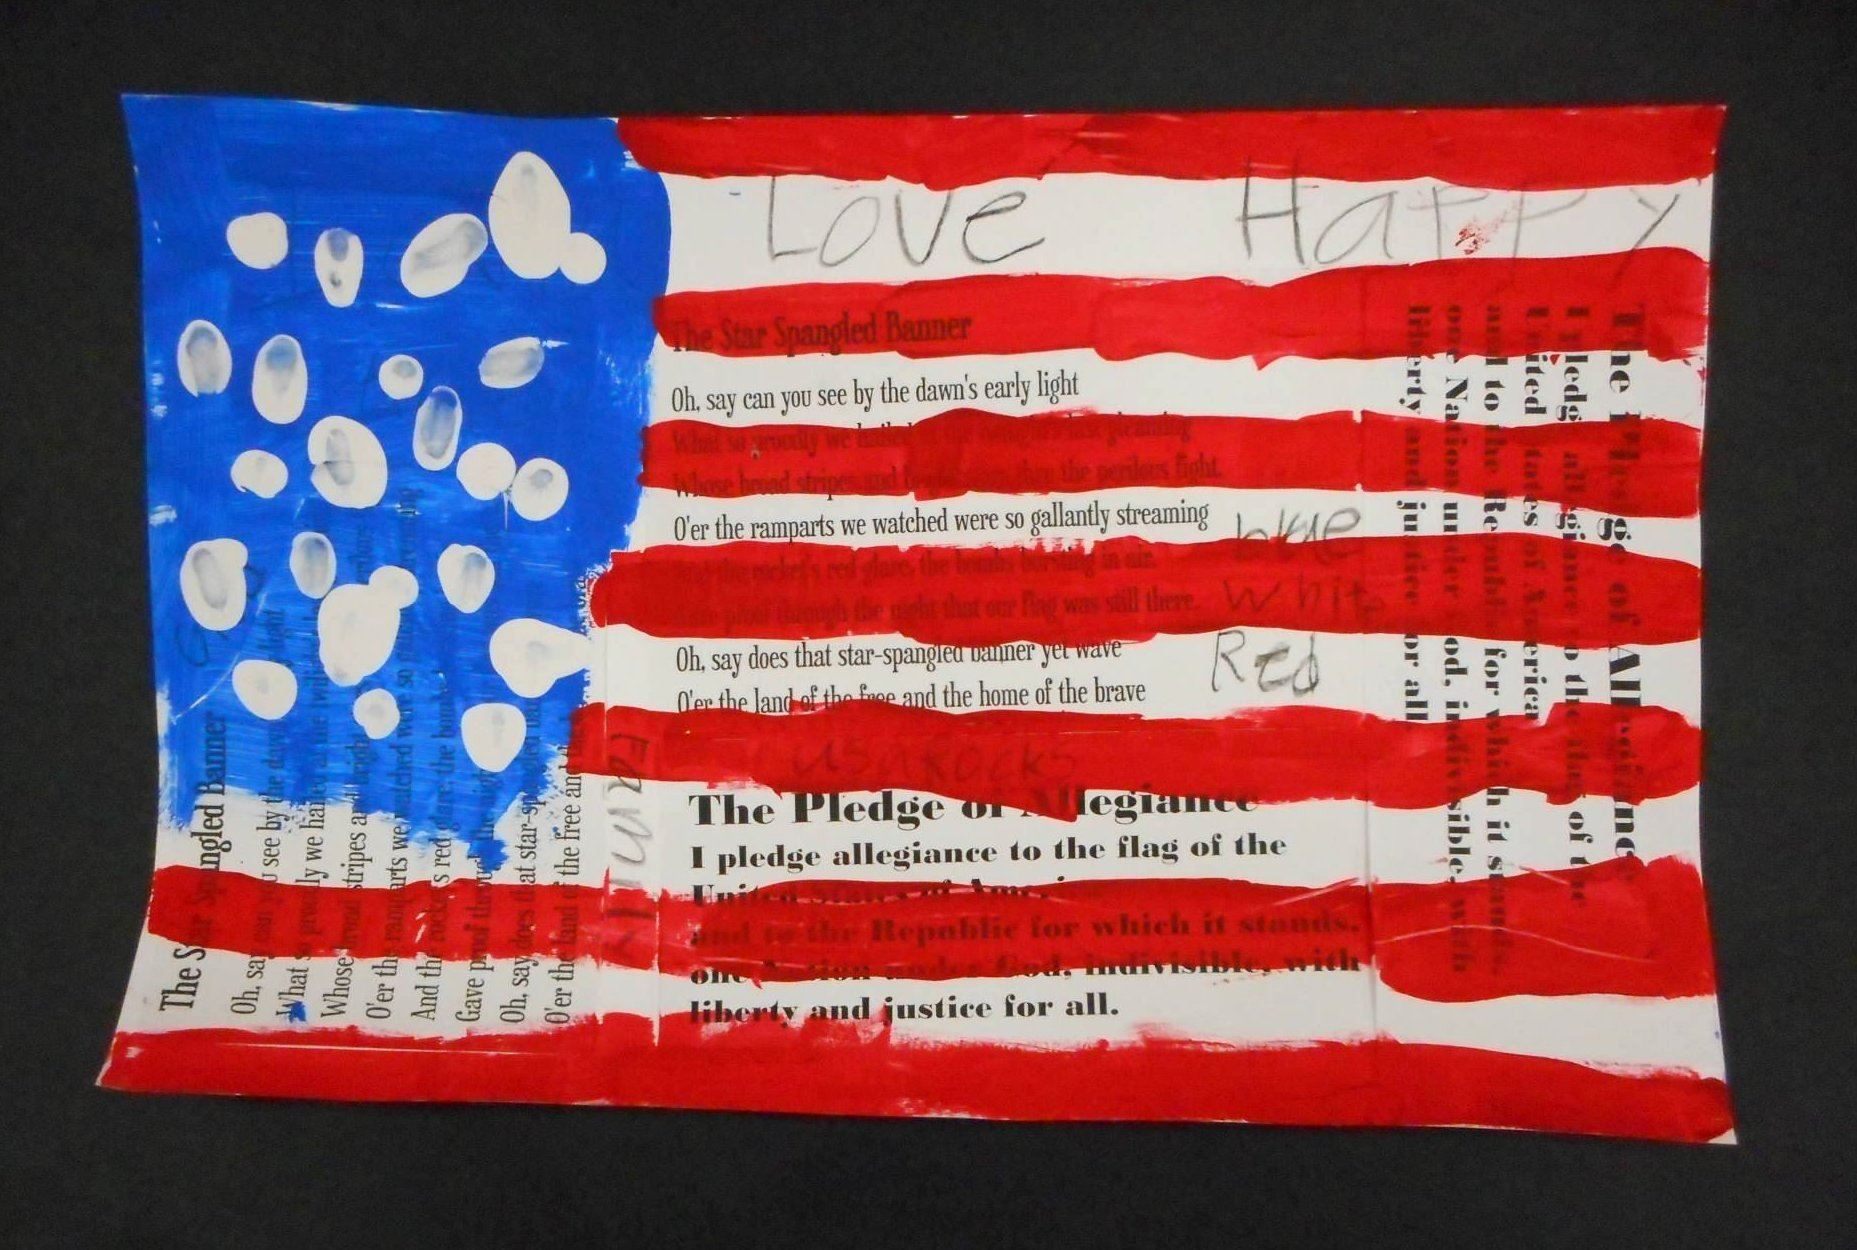 Love Happy
The Star Spangled Banner
Oh, say can you see by the dawn's early light
What so proudly we hailed at the twilight's last gleaming
Whose broad stripes and bright stars, thru the perilous fight.
O'er the ramparts we watched were so gallantly streaming
And the rocket's red glare, the bombs bursting in air.
Gave proof through the night that our flag was still there.
Oh, say does that star-spangled banner yet wave
O'er the land of the free and the home of the brave
blue
White
Red
USA Rocks
The Pledge of Allegiance
I pledge allegiance to the flag of the
United States of America
and to the Republic for which it stands.
one Nation under God, indivisible, with
liberty and justice for all.
The Pledge of Allegiance
I pledge allegiance to the flag of the
United States of America
and to the Republic for which it stands.
one Nation under God, indivisible, with
liberty and justice for all.
The Star Spangled Banner
Oh, say can you see by the dawn's light
What so proudly we hailed at the
Whose broad stripes and bright
O'er the ramparts we watched were so
And the rocket's red glare, the bombs
Gave proof through the night
Oh, say does that star-spangled
O'er the land of the free and the